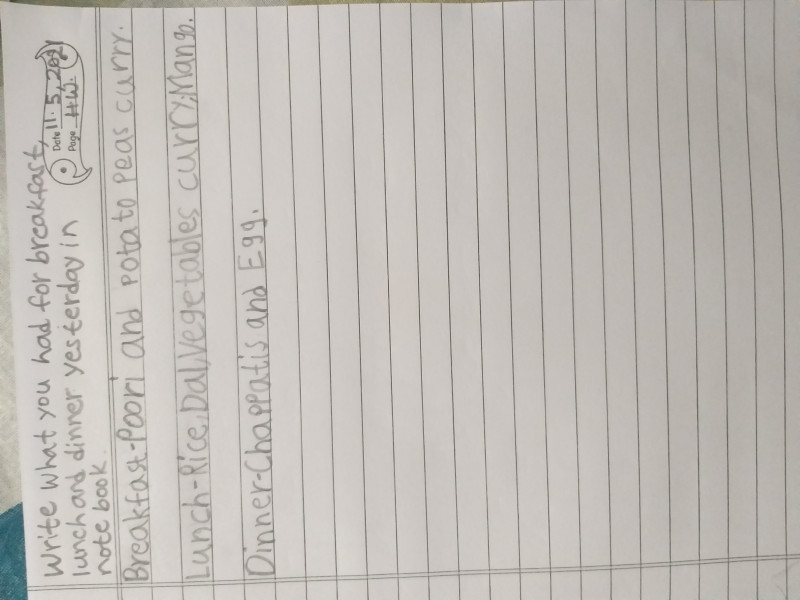 Write what you had for breakfast,
lunch and dinner yesterday in
note book.
Date 11.5,2021
Page H.W.
Breakfast-Poori and potato peas curry.
Lunch-Rice,Dal,Vegetables curry,Mango.
Dinner-Chappatis and Egg.